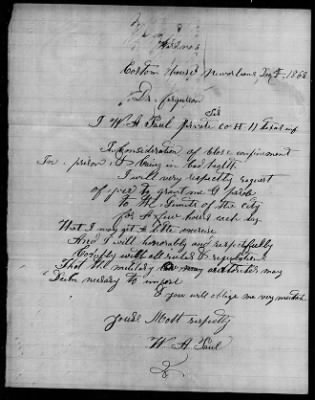 Custom House New Orleans, 1863
Dr. Ferguson
Sir
I W A Paul private Co H 11
In consideration of close confinement
In prison & being in bad health
I will very respectly request
of yree to grant me a parole
to the limits of the city
for A few hours each day
That I may get a little exercise
And I will honorably and respectfully
Comply with all rules & regulations
That the military may
necessary to impose
& you will oblige me very much
Yours Most respectly
W. A. Paul